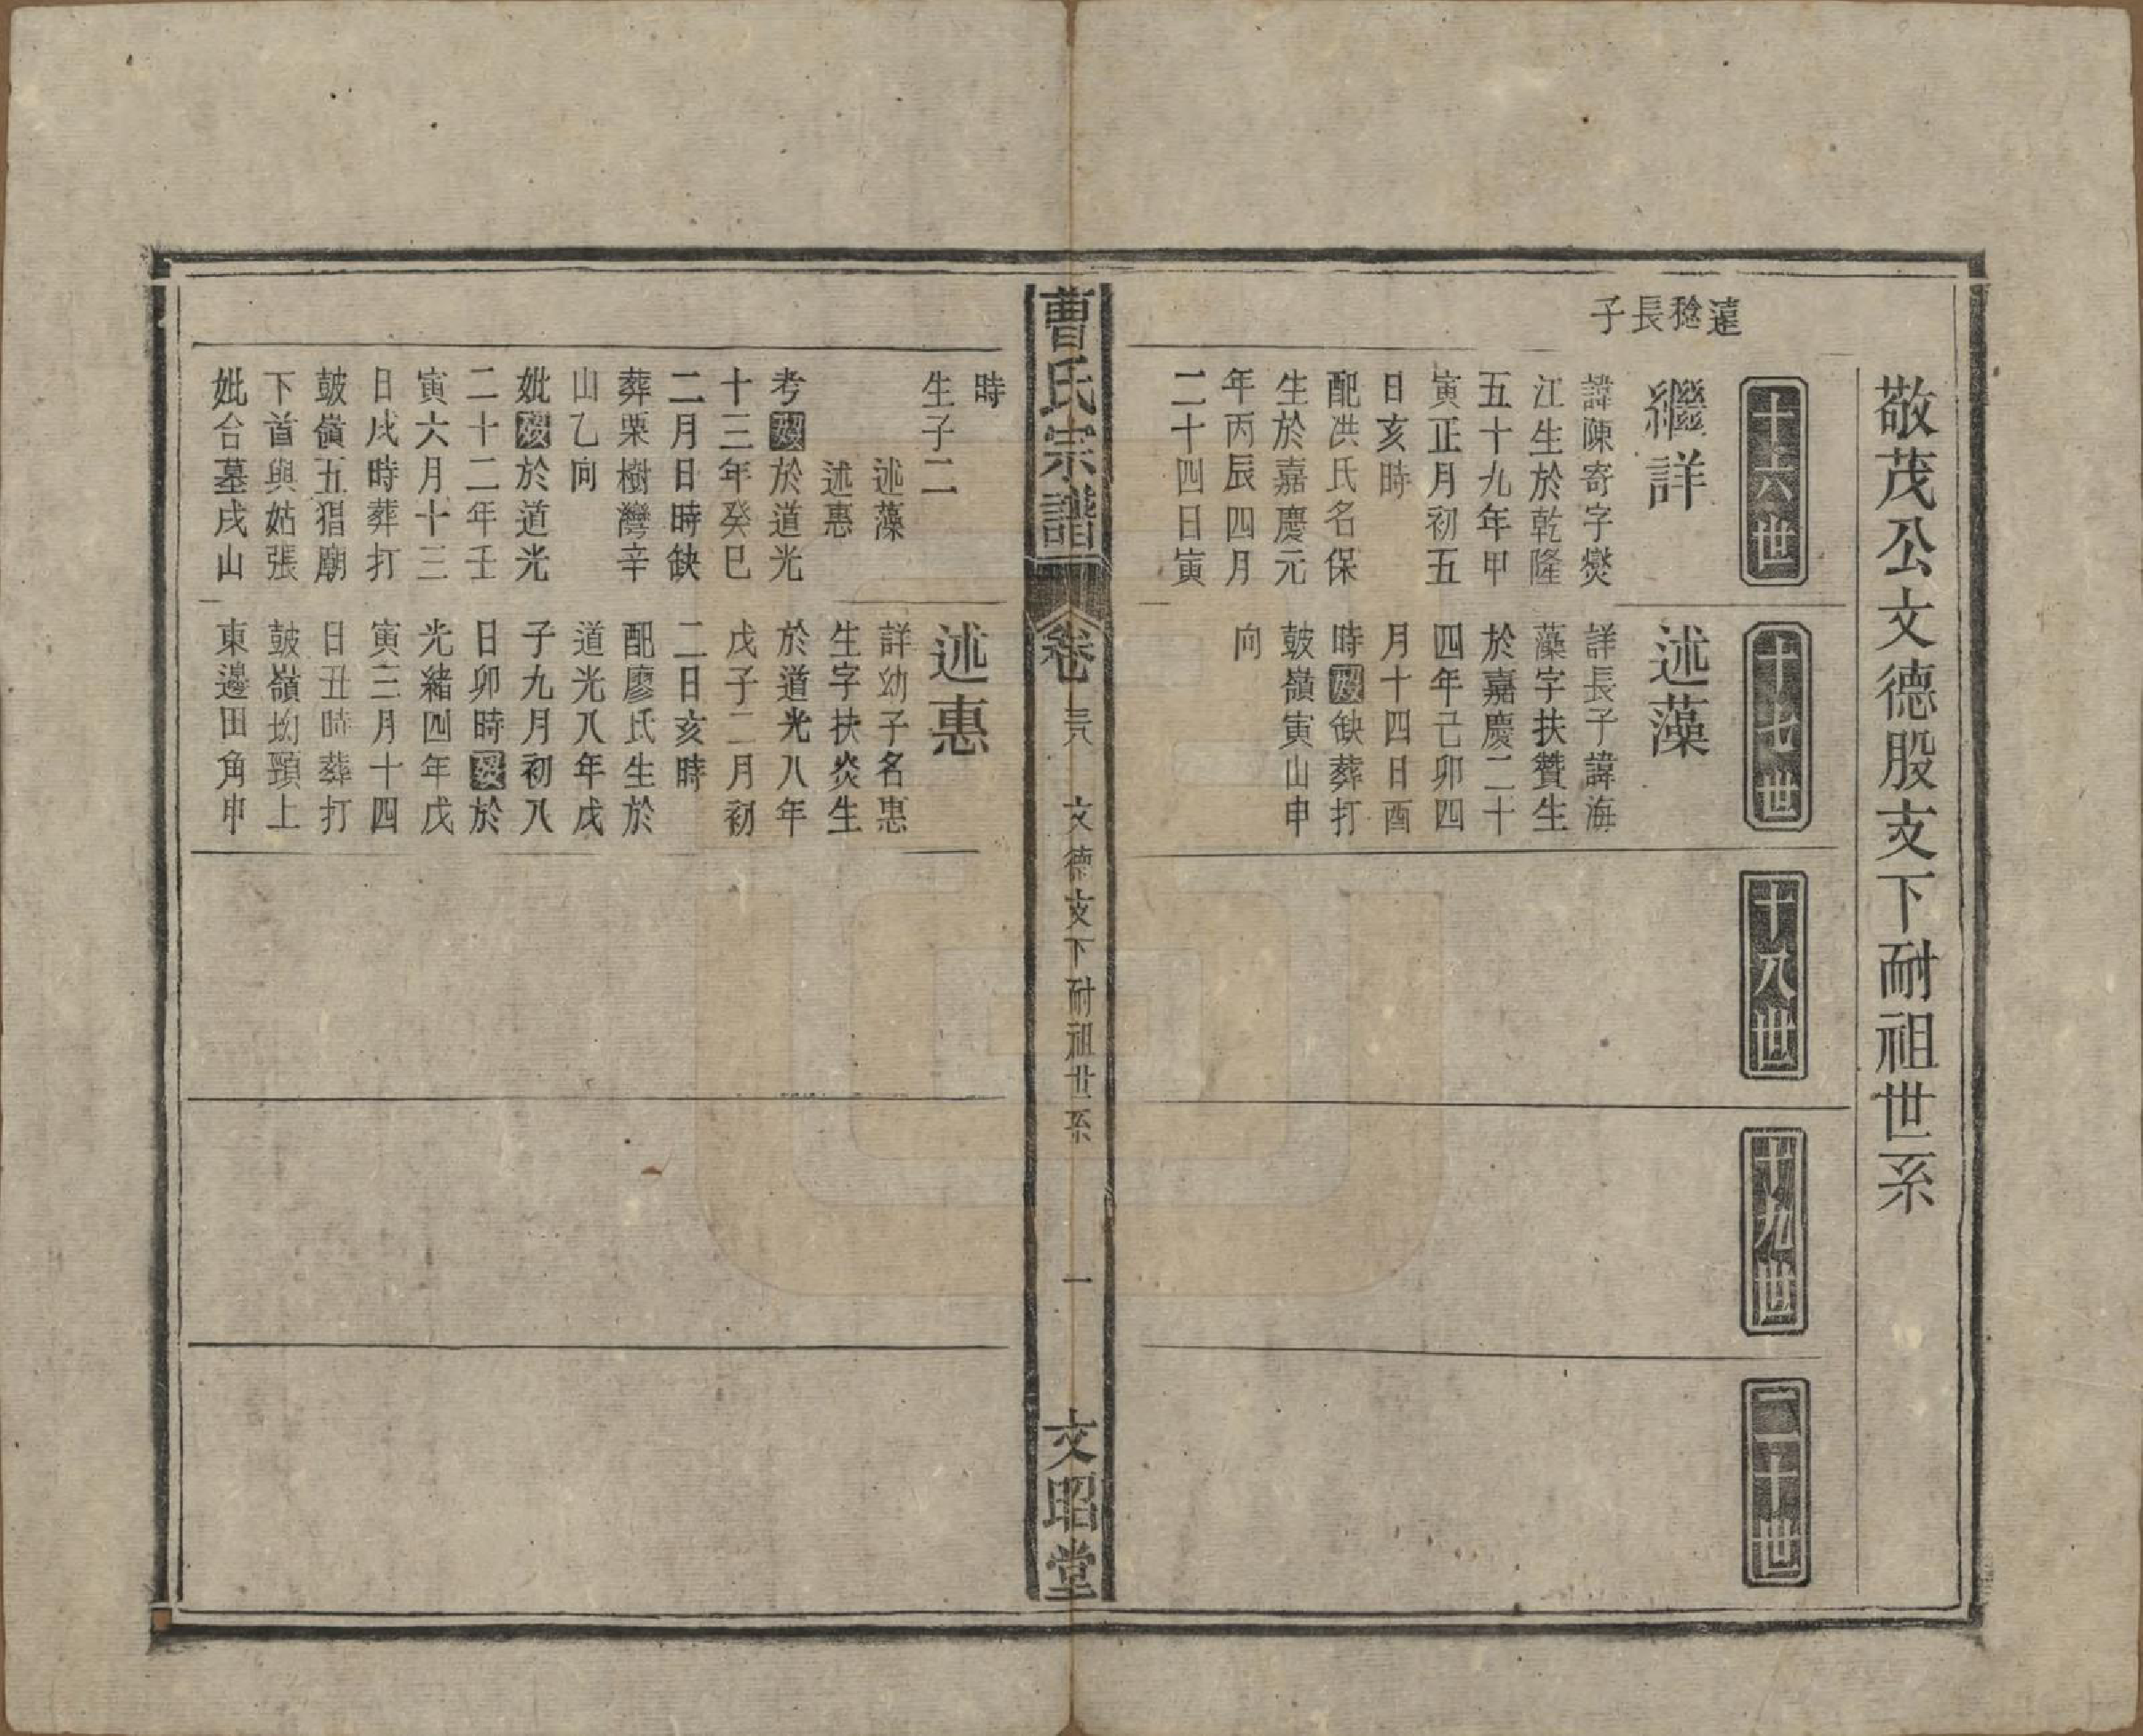 敬茂公文德股支下耐祖世系
十六世
十七世
十八世
十九世
二十世
遠稔長子
繼詳
諱陳寄字燮
江生於乾隆
五十九年甲
寅正月初五
日亥時
配洪氏名保
生於嘉慶元
年丙辰四月
二十四日寅
述藻
詳長子諱海
藻字扶贊生
於嘉慶二十
四年己卯四
月十四日酉
時歿缺葬打
鼓嶺寅山申
向
曹氏宗譜
卷
文德支下耐祖世系
一
文昭堂
時
生子二
述藻
述惠
考歿於道光
十三年癸巳
二月日時缺
葬栗樹灣辛
山乙向
妣歿於道光
二十二年壬
寅六月十三
日戌時葬打
鼓嶺五猖廟
下首與姑張
妣合墓戌山
述惠
詳幼子名惠
生字扶炎生
於道光八年
戊子二月初
二日亥時
配廖氏生於
道光八年戊
子九月初八
日卯時歿於
光緒四年戊
寅三月十四
日丑時葬打
鼓嶺坳頸上
東邊田角申